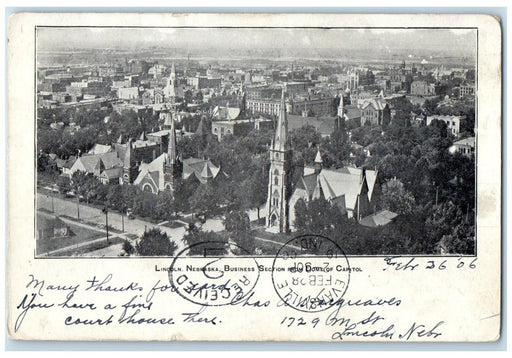 Lincoln, Nebraska, Business Section from Dome of Capitol
Feb 26 '06
Many thanks for card
You have a fine
court house there.
Chas Hargreaves
1729 M St
Lincoln Nebr
RECEIVED
FEB 28
2 - 90